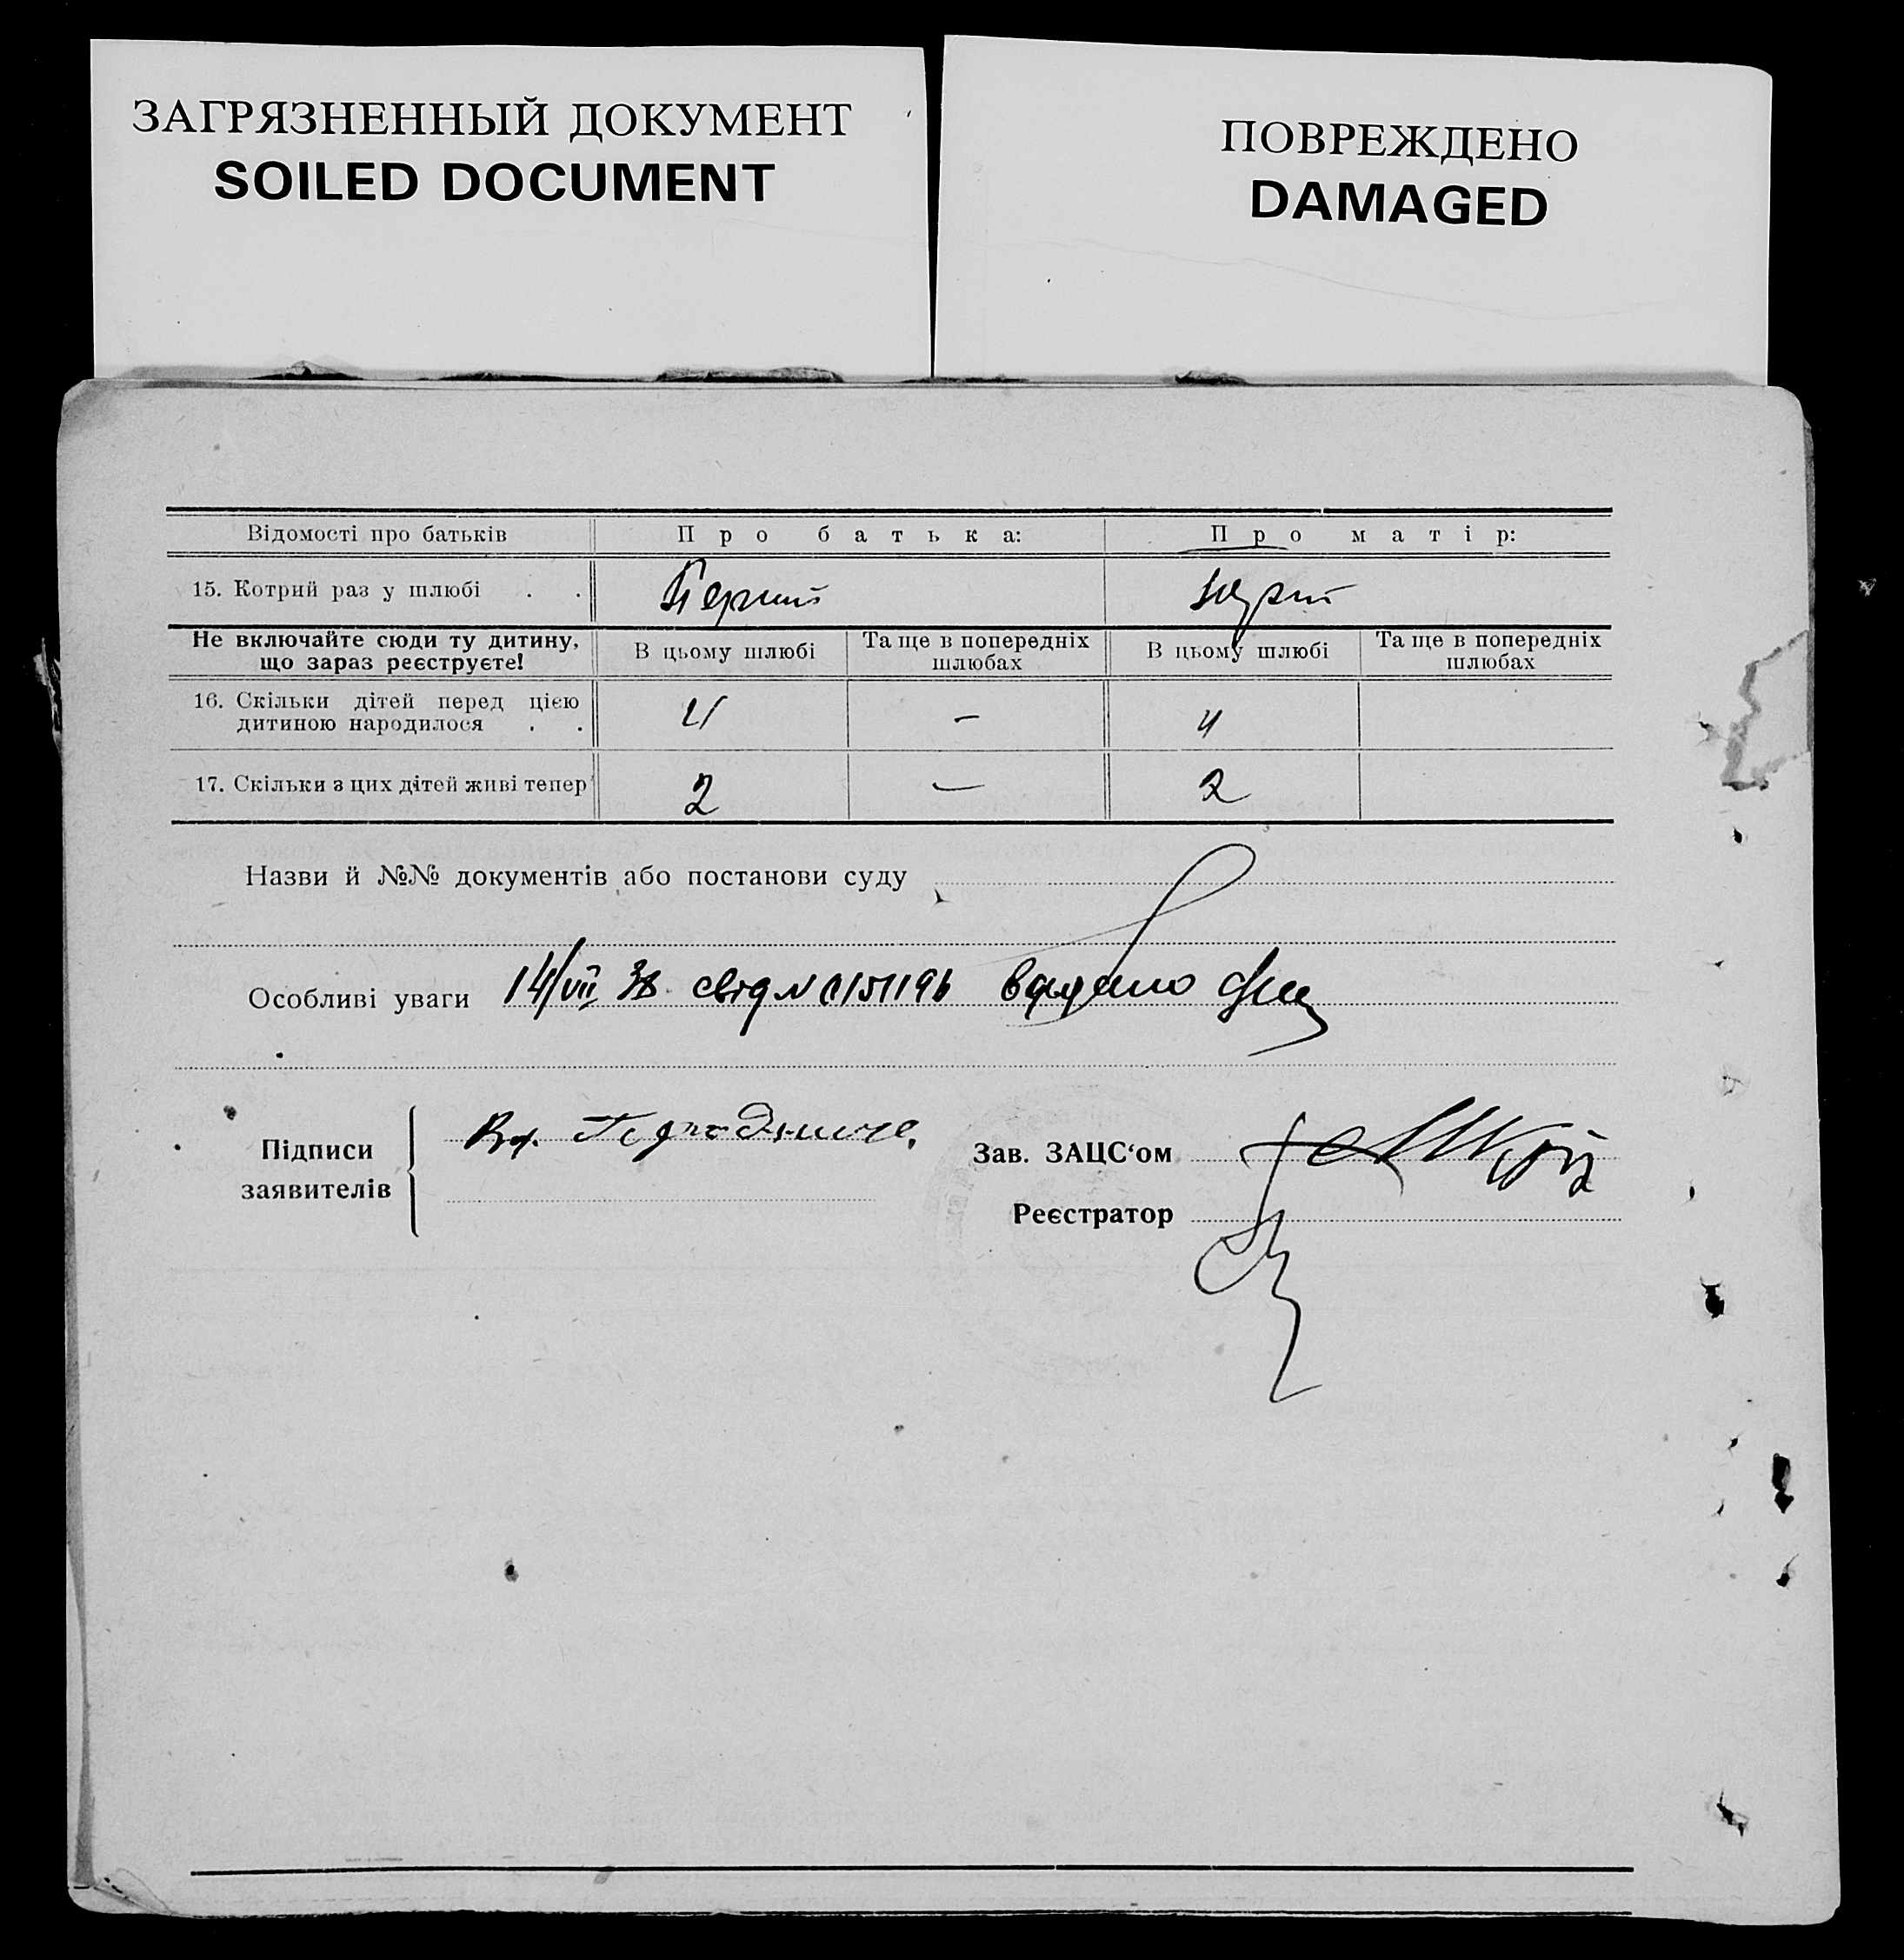 ЗАГРЯЗНЕННЫЙ ДОКУМЕНТ
SOILED DOCUMENT
ПОВРЕЖДЕНО
DAMAGED
Відомості про батьків Про батька: Про матір:
15. Котрий раз у шлюбі . . Перший
Не включайте сюди ту дитину, що зараз реєструєте! В цьому шлюбі Та ще в попередніх шлюбах В цьому шлюбі Та ще в попередніх шлюбах
16. Скільки дітей перед цією
дитиною народилося . . 4 – 4
17. Скільки з цих дітей живі тепер 2 — 2
Назви й №№ документів або постанови суду
Особливі уваги 14/VII 38 свід N
Підписи
заявителів
Зав. ЗАЦС‘ом
Реєстратор